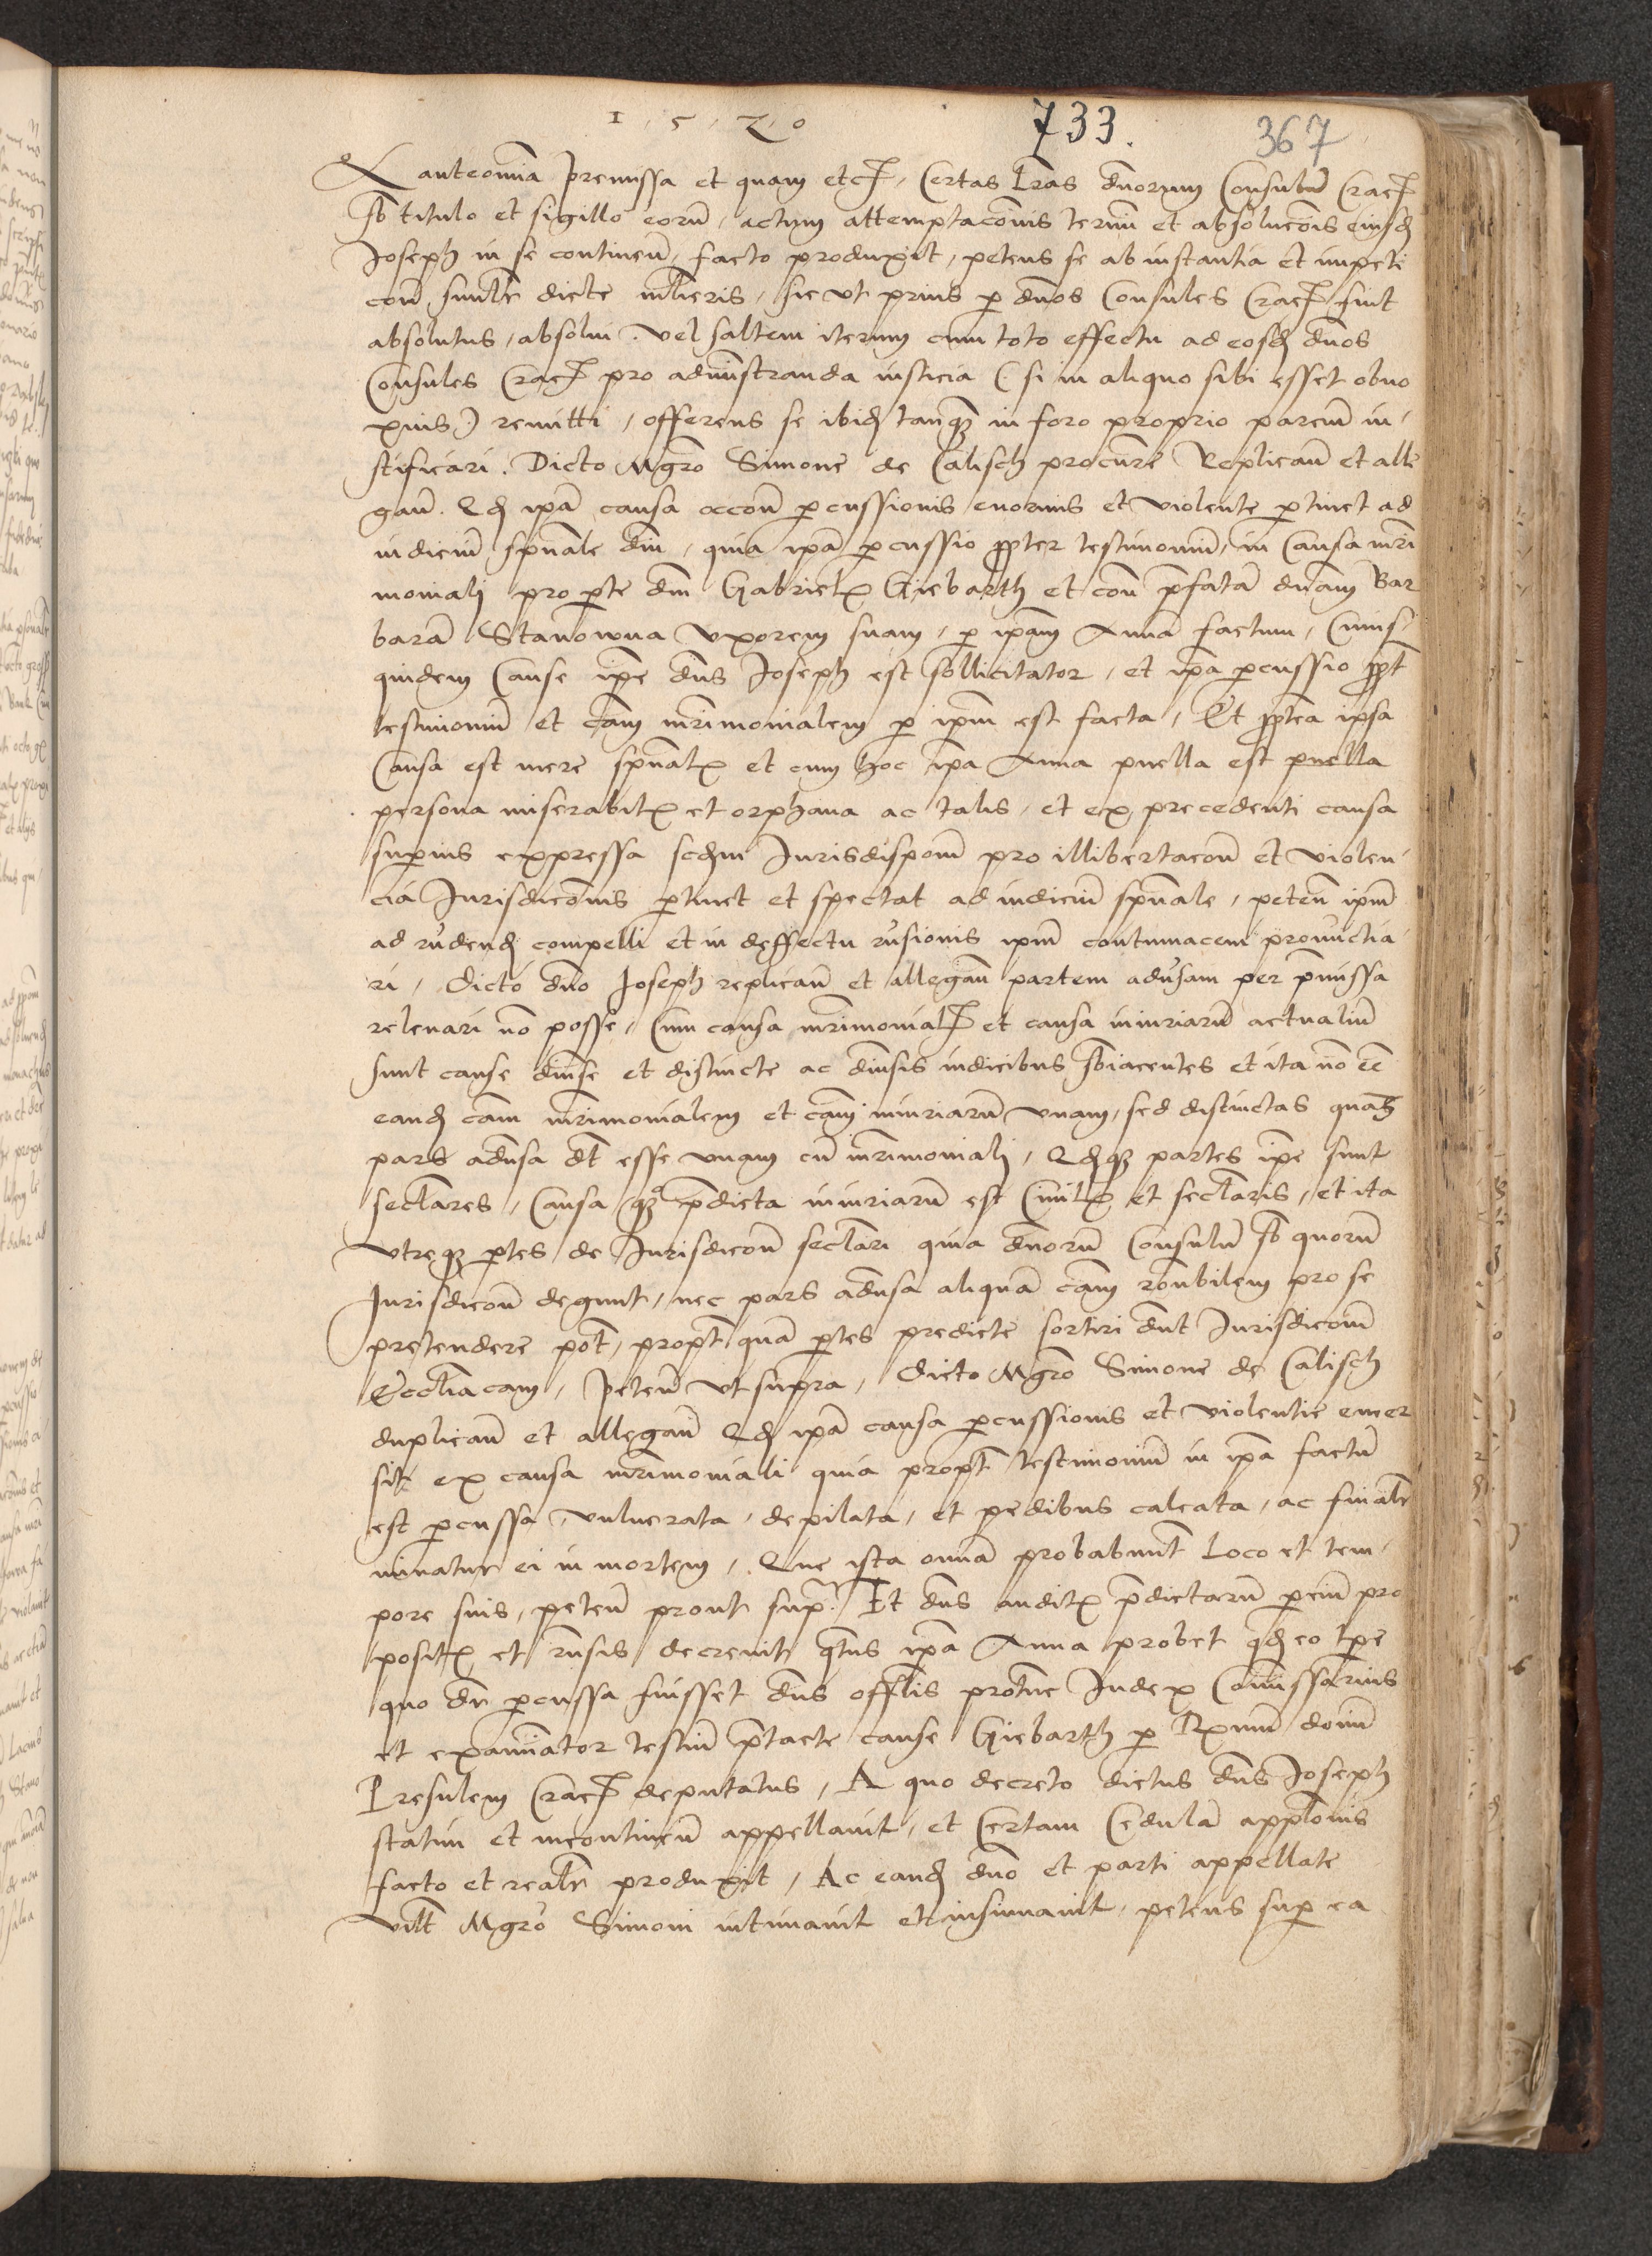 1 5 2 0
733.
367
anteomnia premissa et quam etc. Certas lras dnorum Consulum Crac
sb titulo et sigillo eorum, actum attemptacionis termini et absolucois eiusd
Joseph in se continen, facto produxit, petens se ab instantia et impeti
con simlr dicte mlieris, sic vt prius p dnos Consules Crac fuit
absolutus, absolui. vel saltem iterum cum toto effectu ad eosd dnos
Consules Crac pro administranda iusticia (si in aliquo sibi esset obno
xius) remitti, offerens se ibid tanq in foro proprio parem iu,
stificari. Dicto Mgro Simone de Calisch procure Replican et alle
gan. Qd ipa causa accon percussionis enormis et violente ptinet ad
iudiciu spuale dni, quia ipa percussio ppter testimoniu, in Causa mri
moniali pro pte dni Gabrielx Giebarth et con pfata dnam Bar
bara Stanowna vxorem suam, p ipam Anna factum, Cuius
quidem Cause ipe dns Joseph est sollicitator, et ipa percussio ppt
testimoniu et cam mrimonialem p ipm est facta, Et pptea ipsa
Causa est mere spualx et cum hoc ipa Anna puella est puella
persona miserabilx et orphana ac talis, et ex precedenti causa
superius expressa scdm Jurisdispom pro illibertacon et violen
cia Jurisdiconis ptinet et spectat ad iudiciu spuale, peten ipm
ad rndend compelli et in deffectu rnsionis ipm contumacem pronuctia
ri, Dicto dno Joseph replican et allegan partem aduersam per pmissa
releuari no posse, Cum causa mrimonial et causa iniuriaru actualiu
sunt cause diuse et distincte ac diusis iudicibus sbiacentes et ita no ee
eand cam mrimonialem et cam iniuriaru vnam, sed distinctas quas
pars adusa dt esse vnam cu mrimoniali, Qdq partes ipe sunt
seclares, Causa q pdicta iniuriaru est Ciuilx et seclaris, et ita
vtreq ptes de Jurisdicon seclari quia dnoru Consulu sb quoru
Jurisdicon degunt, nec pars adusa aliqua cam ronbilem pro se
pretendere pot, propt qua ptes predicte sortiri dnt Jurisdicom
Ecclliacam, peten vt supra, Dicto Mgro Simone de Calisch
duplican et allegan Qd ipa causa percussionis et violentie emer
sit ex causa mrimoniali quia propt testimoniu in ipa factu
est percussa, vulnerata, depilata, et pedibus calcata, ac finalr
minatur ei in mortem. Que ista omia probabunt Loco et tem,
pore suis, peten prout sup. Et dns auditx pdictaru perciu pro
positx et rnsis decreuit qtnus ipa Anna probet qd eo tpe
quo dr percussa fuisset dns offlis protunc Judex Comissarius
et examiator testiu ptacte cause Giebarth p Rxmu domu
Presulem Crac deputatus, A quo decreto dictus dns Joseph
statim et incontinen appellauit, et Certam Cedula applonis
facto et realr produxit, Ac eand dno et parti appellate
vilt Mgro Simoni intimauit et insinuauit, petens sup ea